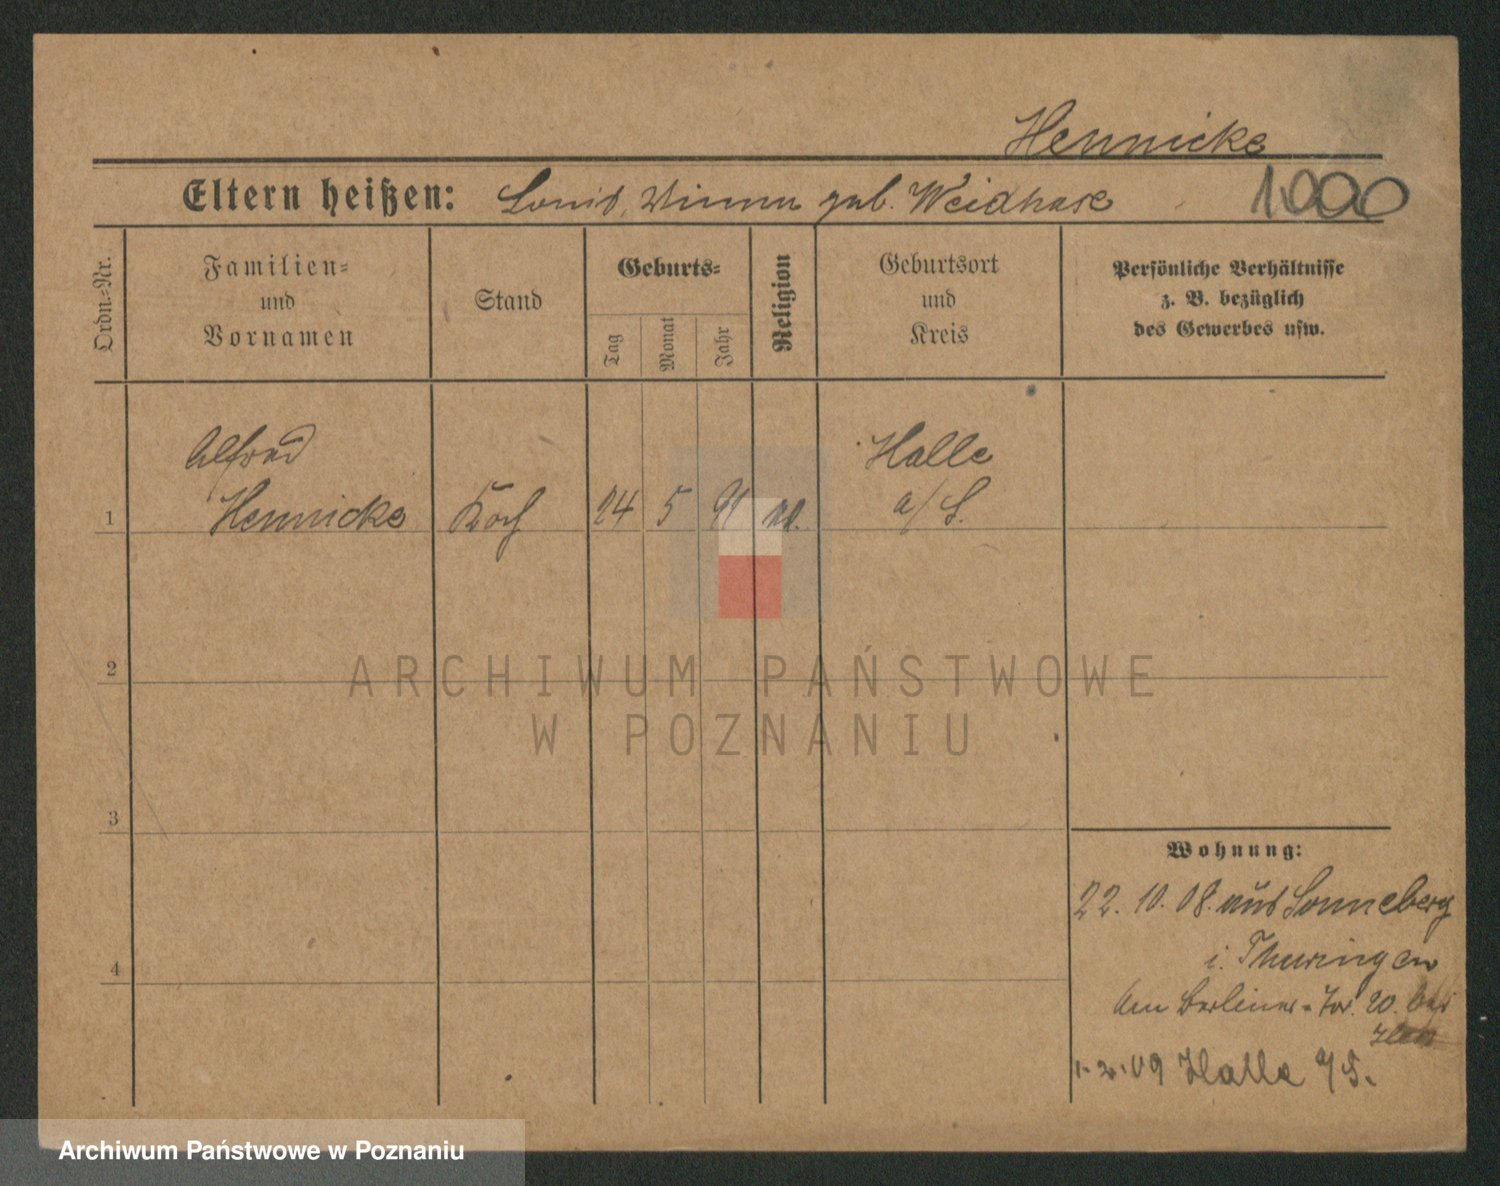 Hennicke
Eltern heißen: Louis, Minna geb. Weidhase
1000
Ordn.-Nr.
Familien-
und
Vornamen
Stand
Geburts-
Tag
Monat
Jahr
Religion
Geburtsort
und
Kreis
Persönliche Verhältnisse
z. B. bezüglich
des Gewerbes usw.
Alfred Halle
1 Hennicke Koch 24 5 91 a/S.
2
ARCHIWUM PAŃSTWOWE
W POZNANIU
3
Wohnung:
22. 10. 08. aus Sonneberg
i. Thuringen
4
Am Berliner-Tor. 20. bei
1.2.09 Halle a/S.
Archiwum Państwowe w Poznaniu